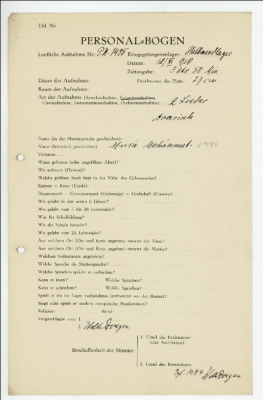 Lfd. Nr.
PERSONAL-BOGEN
Lautliche Aufnahme Nr.: PK 1495 Kriegsgefangenenlager: Halbmondlager
Datum:
Zeitangabe: 3 Uhr 30 Min.
Dauer der Aufnahme: Durchmesser der Platte: 27 cm
Raum der Aufnahme:
Art der Aufnahme (Sprechaufnahme, Gesangsaufnahme,
Choraufnahme, Instrumentenaufnahme, Orchesteraufnahme): 2 Lieder
Name (in der Muttersprache geschrieben):
Name (lateinisch geschrieben):
Vorname:
Wann geboren (oder ungefähres Alter)?
Wo geboren (Heimat)?
Welche größere Stadt liegt in der Nähe des Geburtsortes?
Kanton — Kreis (Ujedz):
Department — Gouvernement (Gubernija) — Grafschaft (County):
Wo gelebt in den ersten 6 Jahren?
Wo gelebt vom 7. bis 20. Lebensjahr?
Was für Schulbildung?
Wo die Schule besucht?
Wo gelebt vom 20. Lebensjahr?
Aus welchem Ort (Ort und Kreis angeben) stammt der Vater?
Aus welchem Ort (Ort und Kreis angeben) stammt die Mutter?
Welchem Volksstamm angehörig?
Welche Sprache als Muttersprache?
Welche Sprachen spricht er außerdem?
Kann er lesen? Welche Sprachen?
Kann er schreiben? Welche Sprachen?
Spielt er ein im Lager vorhandenes Instrument aus der Heimat?
Singt oder spielt er modern europäische Musikweisen?
Religion: Beruf:
Vorgeschlagen von: 1.
2. Wilh. Doegen
Beschaffenheit der Stimme:
1. Urteil des Fachmannes
(des Assistenten)
2. Urteil des Kommissars:
Wilh. Doegen